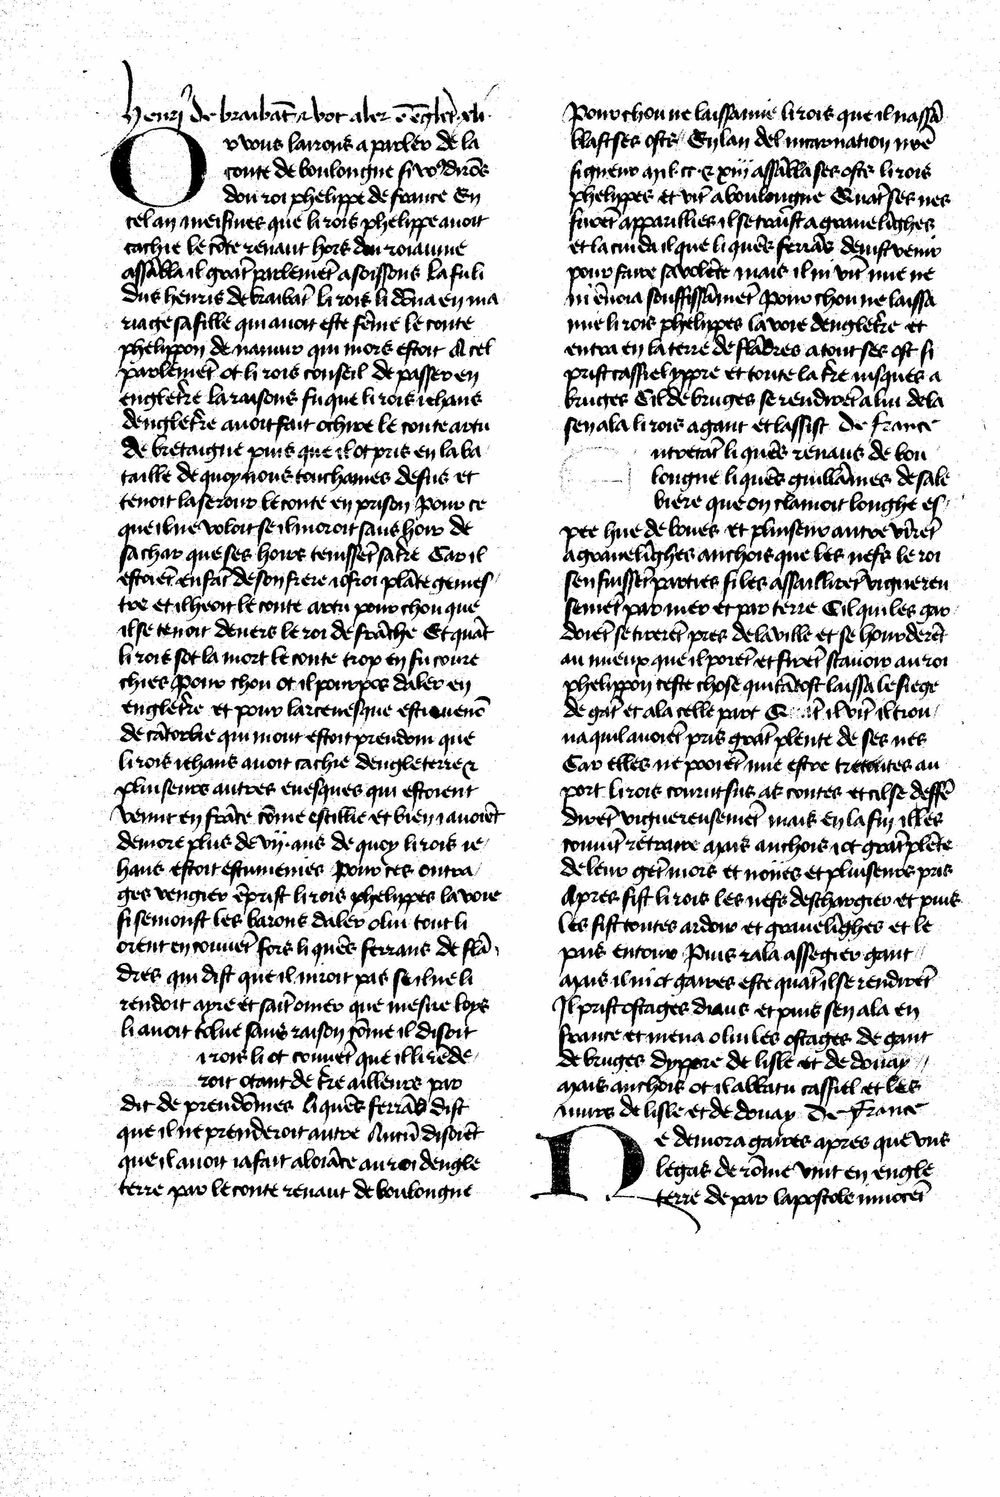 henri de braibāt ⁊ vot aler ē ēglet̄re
Or vous lairons a parler de la
conte de boulongne si vo9 dirōs
dou roi phelippe de france En
cel an meismes que li rois phelippe auoit
cachie le cōte renaut hors dou roiaume
assābla il grāt parlemēt a soissons La fu li
dus henris de braibāt li rois li dōna en ma
riage sa fille qui auoit este feme le conte
phelippon de namur qui mors estoit A cel
parlemēt ot li rois conseil de passer en
engletr̄e la raisons fu que li rois iehans
dengletr̄e auoit fait ochirre le conte artu
de bretaigne puis que il ot pris en la ba
taille de quoy nous touchames desus et
tenoit la serour le conte en prison Pour ce
que il ne voloit se il moroit sans hoir de
sa char que ses hoirs tenissēt sa tr̄e Car il
estoiēt enfāt de son frere iofroi plāte genes
tre et il heoit le conte artu pour chou que
il se tenoit deuers le roi de frāche Et quāt
li rois sot la mort le conte trop en fu coure
chies Pour chou ot il pourpos daler en
engletr̄e et pour larceuesque estieuenō
de cātorbie qui mout estoit preudom que
li rois iehans auoit cachie dengleterre ⁊
pluiseurs autres euesques qui estoient
venut en frāce cōme essillie et bien i auoiēt
demore plus de vij ans de quoy li rois ie
hans estoit escumenies Pour ces outra
ges vengier ēprist li rois phelippes la voie
si semonst les barons daler o lui tout li
orent en couuēt fors li quēs ferrans de flā
dres qui dist que il niroit pas se il ne li
rendoit ayre et saīt omer que mesire loys
li auoit tolue sans raison cōme il disoit
i rois li ot couuēt que il li rede
roit otant de tr̄e ailleurs par
dit de preudōmes li quēs ferrās dist
que il ne prenderoit autre Aucū disoiēt
que il auoit ia fait aloiāce au roi dengle
terre par le conte renaut de boulongne
Pour chou ne laissa mie li rois que il nassā
blast ses ostz En lan del incarnation nrē
signeur m l cc ⁊ xiij assābla ses ostz li rois
phelippes et vīt a boulongne Quāt ses nes
furēt apparillies il se traist a grauelīghes
et la cuida il que li quēs ferrās deuist venir
pour faire sa volēte mais il ni vīt mie ne
ni ēuoia souffissāmēt Pour chou ne laissa
mie li rois phelippes la voie dengletr̄e et
entra en la terre de flādres a tout ses ost si
prist cassiel yppre et toute la tr̄e iusques a
bruges Cil de bruges se rendirēt a lui de la
sen ala li rois a gant et lassist De france
ntretāt li quēs renaus de bou
longne li quēs guillāmes de sale
biere que on clamoit longhe es
pee hue de boues et pluiseur autre vīrēt
a grauelīghes anchois que les nefs le roi
sen fuissēt parties si les assaillirēt vigereu
semēt par mer et par terre Cil qui les gar
doiēt se tirerēt pres de la ville et se hourderēt
au mieux que il porēt et firēt scauoir au roi
phelippon ceste chose qui tātost laissa le siege
de gāt et ala celle part Quāt il vīt il trou
ua quil auoiēt pris grāt plente de ses nes
Car elles ne pooiēt mie estre tretoutes au
port li rois courut sus as contes et cil se deffē
dirēt viguereusemēt mais en la fin illes
couuīt retraire mais anchois i ot grāt plēte
de leur gēt mors et noiies et pluiseurs pris
Apres fist li rois les nefs deschargier et puis
les fist toutes ardoir et grauelīghes et le
pais entour Puis rala assegier gant
mais il ni ot gaires este quāt il se rendirēt
Il prist ostages diaus et puis sen ala en
france et mena o lui les ostages de gant
de bruges dyppre de lisle et de douay
mais anchois ot il abbatu cassiel et les
murs de lisle et de douay De france
Ne demora gaires apres que vns
legas de rōme vint en engle
terre de par lapostole innocēt